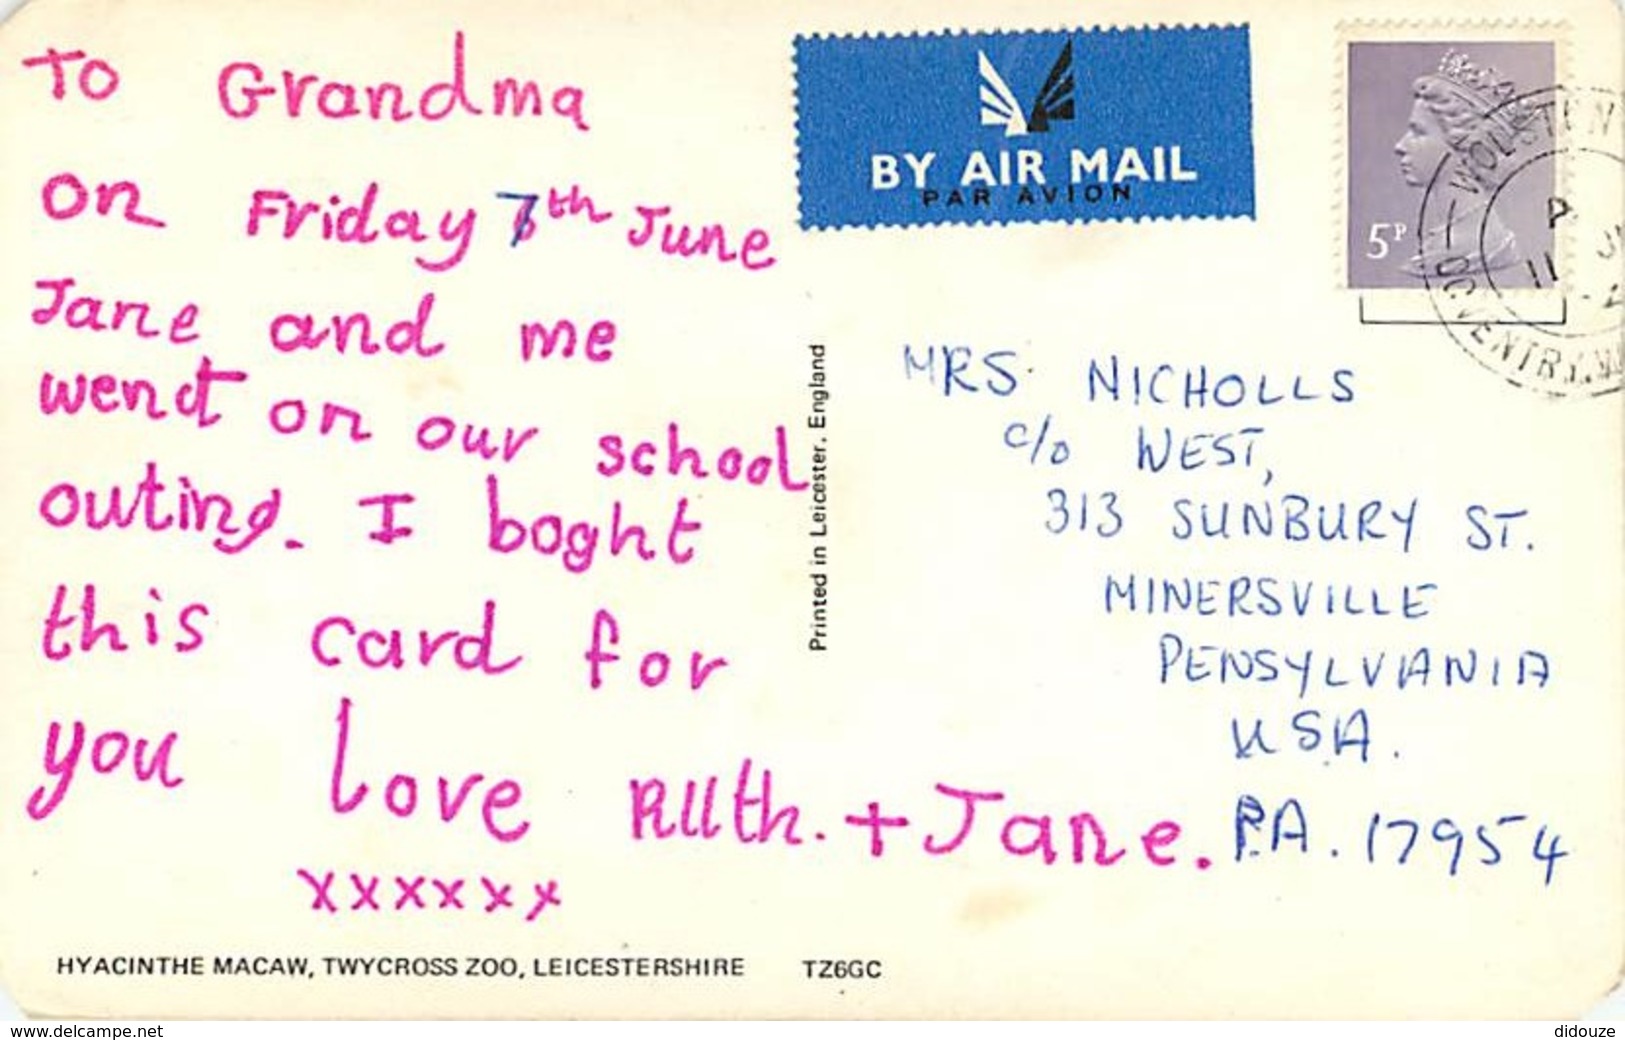 To Grandma
on Friday 7th June
Jane and me
wenct on our school
outing. I boght
this card for
you love Ruth. + Jane.
xxxxxx
HYACINTHE MACAW, TWYCROSS ZOO, LEICESTERSHIRE TZ6GC
Printed in Leicester, England
BY AIR MAIL
PAR AVION
5P
WOLSTON
COVENTRY
11
MRS. NICHOLLS
c/o WEST,
313 SUNBURY ST.
MINERSVILLE
PENSYLVANIA
USA.
P.A. 17954
www.delcampe.net
didouze